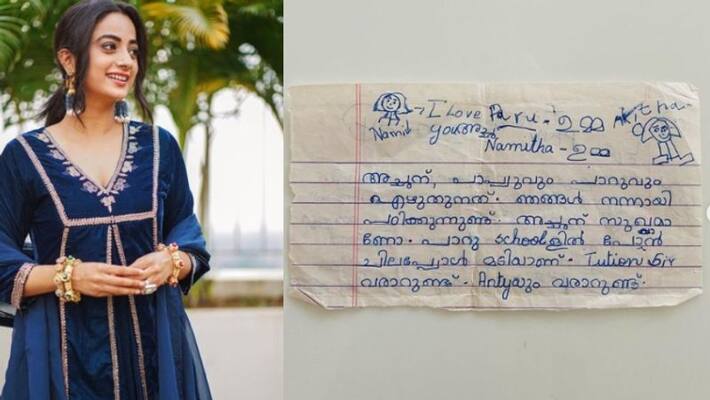 I Love Paru - ഉമ്മ Akitha
Namit you അച്ഛ
Namitha - ഉമ്മ
അച്ഛന്, പാപ്പുവും പാറുവും
എഴുതുന്നത്. ഞങ്ങൾ നന്നായി
പഠിക്കുന്നുണ്ട്. അച്ഛന് സുഖമാ
ണോ. പാറു schoolളിൽ പോകാൻ
ചിലപ്പോൾ മടിയാണ്. Tution Sir
വരാറുണ്ട്. Antyയും വരാറുണ്ട്.